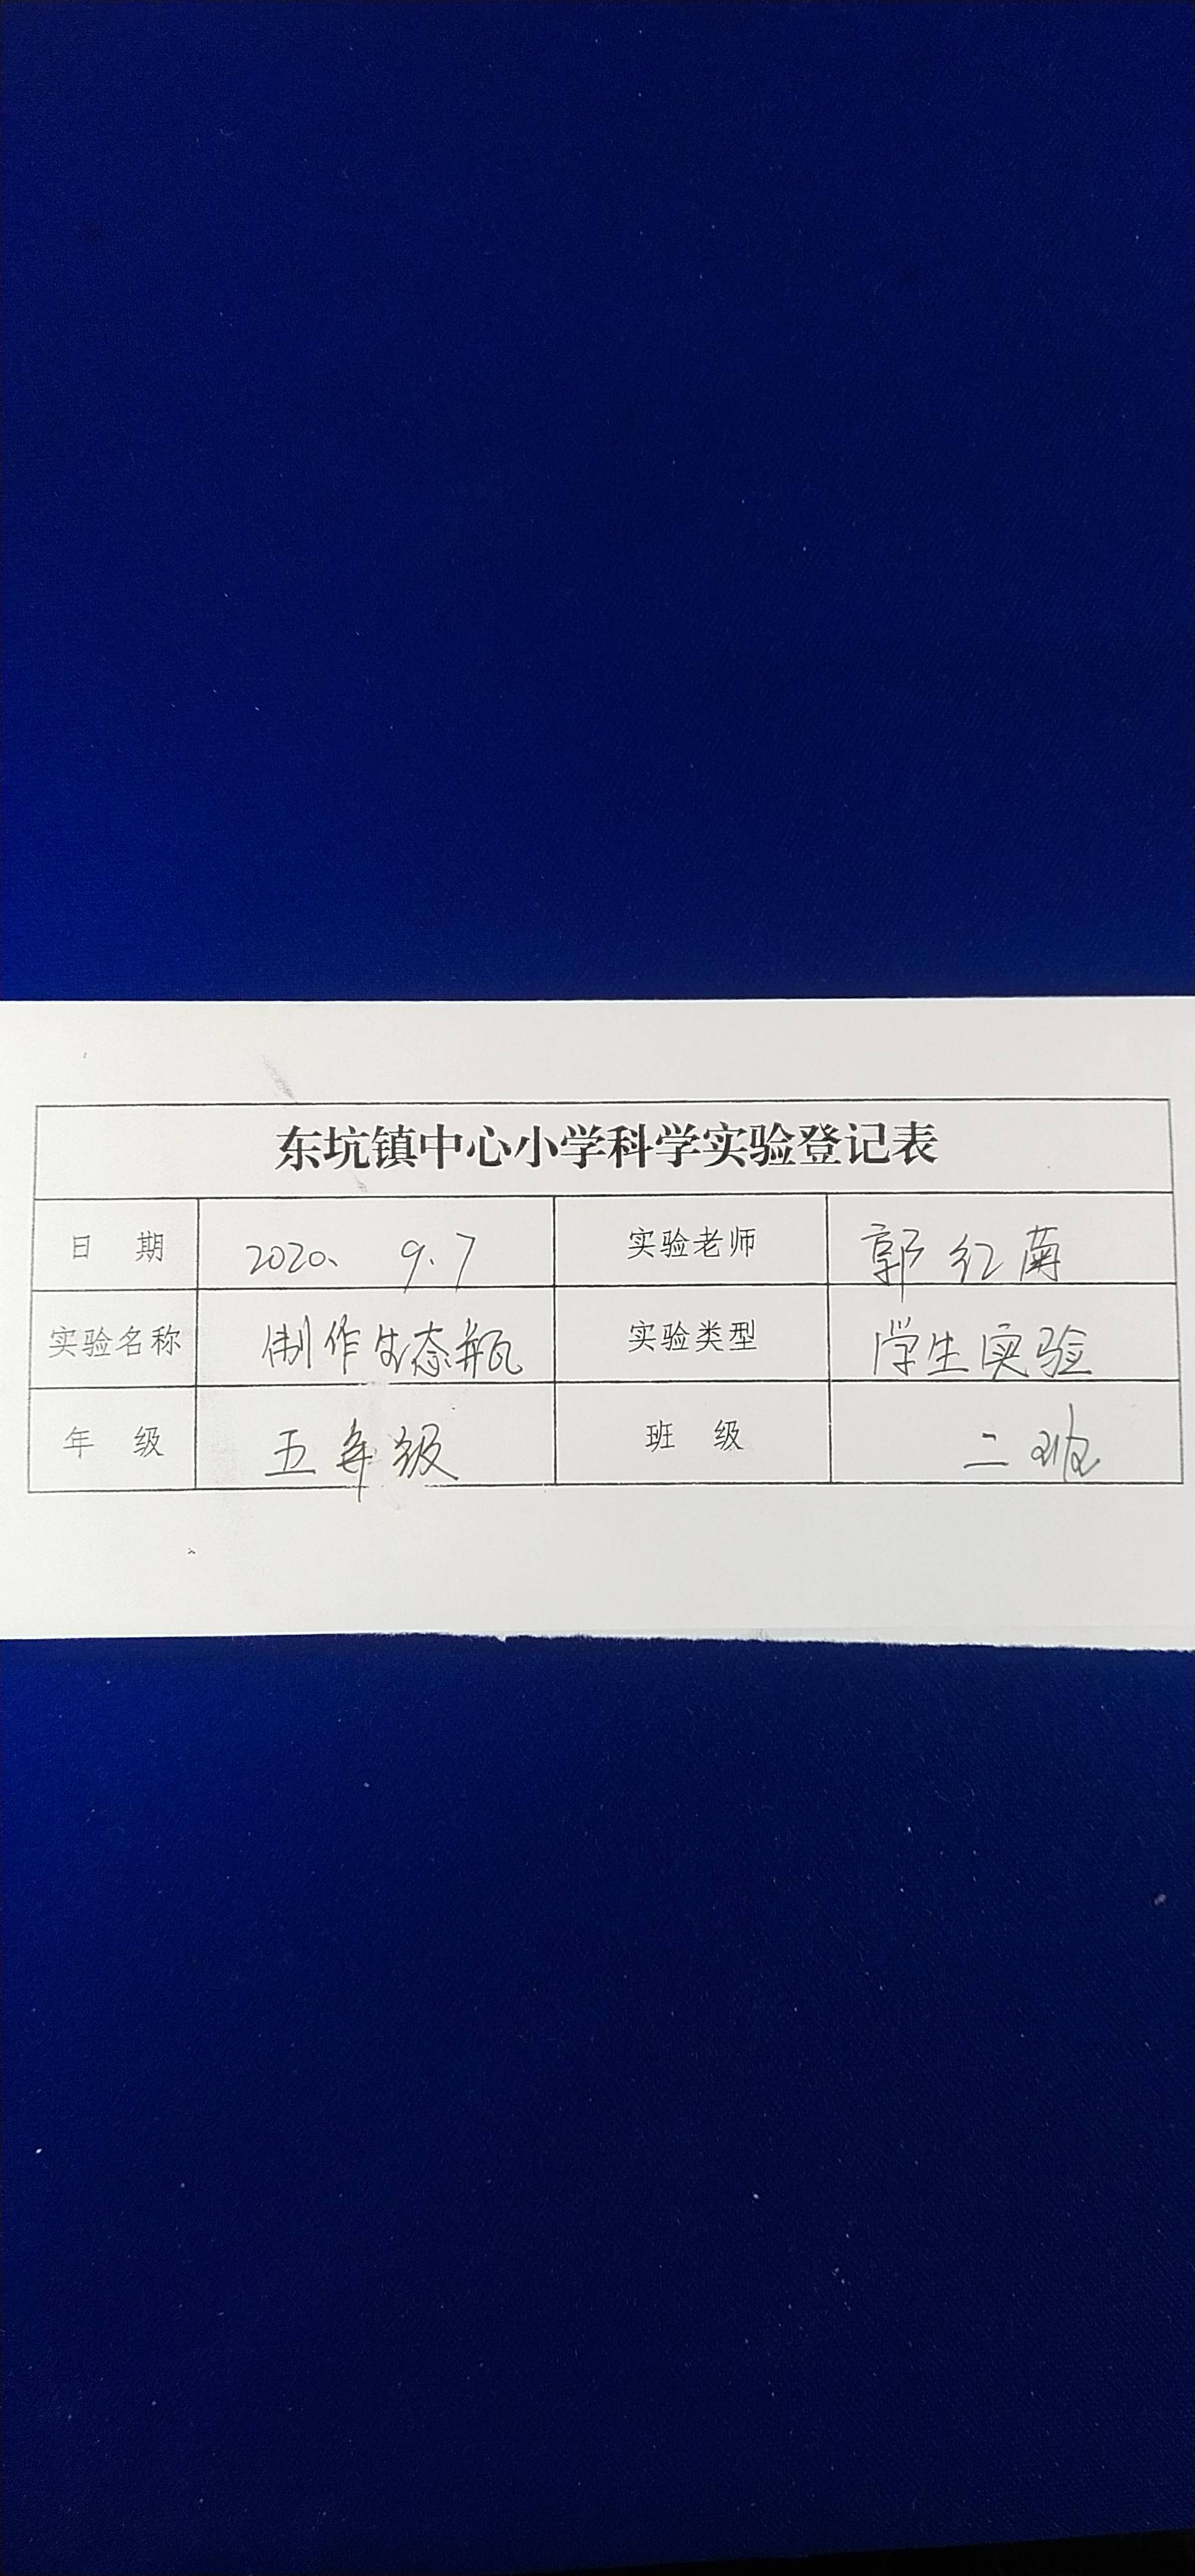 东坑镇中心小学科学实验登记表
日 期 2020、 9.7 实验老师 郭红菊
实验名称 制作生态瓶 实验类型 学生实验
年 级 五年级 班 级 二班